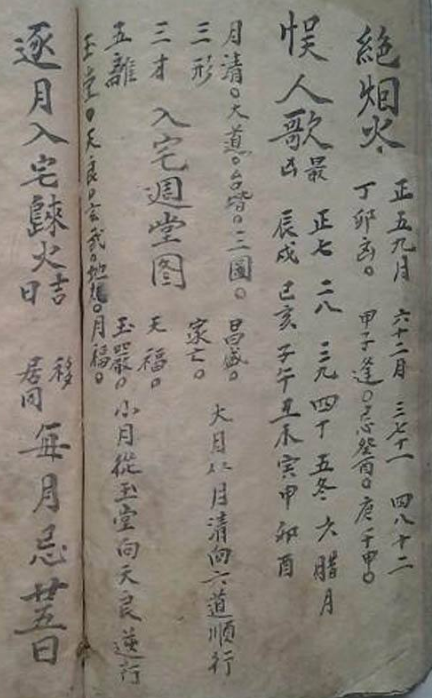 絶烟火
正五九月 六十二月 三七十一 四八十二
丁卯 甲子逢。忌癸酉。庚午甲。
悮人歌 最凶
正七 二八 三九 四十 五冬 六腊月
辰戌 已亥 子午 丑未 寅甲 卯酉
月清。大道。台階。三圖。昌盛。
大月從月清向大道順行
三形 家亡。
三才 入宅週堂图 天福。
五離 玉嚴。小月從玉堂向天良逆行
玉堂。天良。玄武。月福。
逐月入宅火吉日 移居同 每月忌廿五日